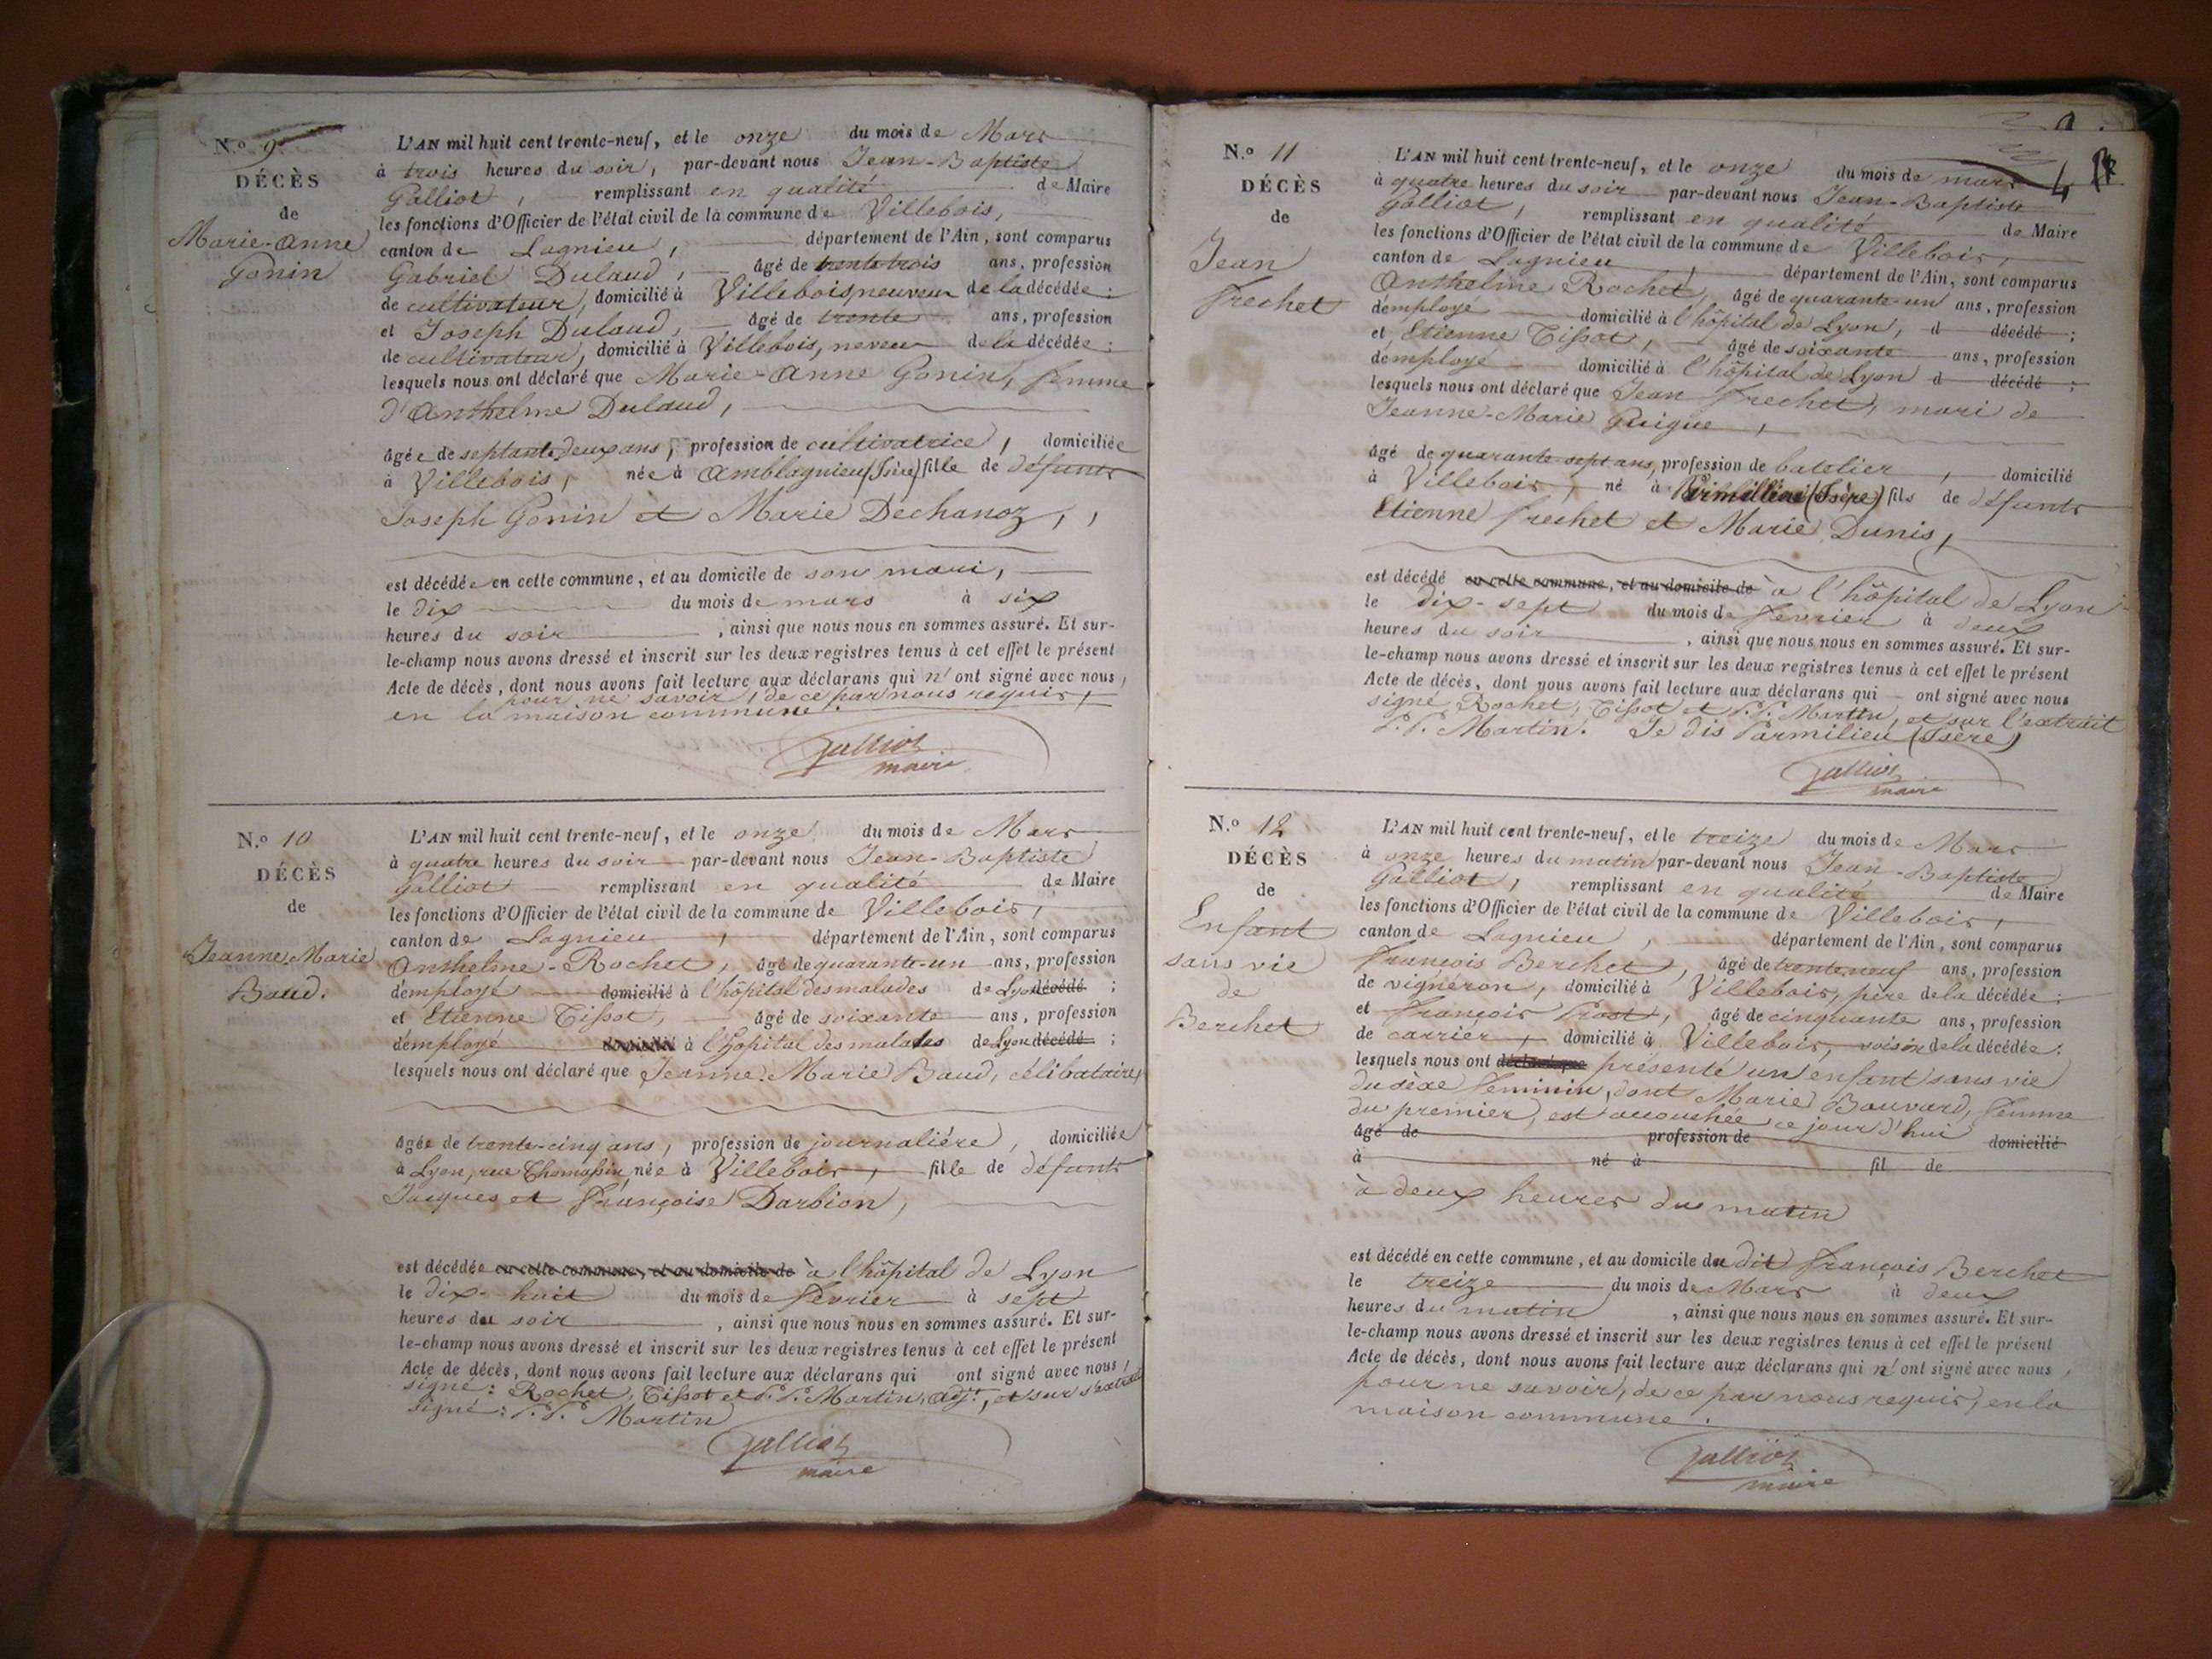 N.o 9.
DÉCÈS
de
Marie-Anne
Gonin
L'AN mil huit cent trente-neuf, et le onze du mois de Mars
à trois heures du soir, par-devant nous Jean-Baptiste
Galliot, remplissant en qualité de Maire
les fonctions d'Officier de l'état civil de la commune de Villebois,
canton de Lagnieu, département de l'Ain, sont comparus
Gabriel Dulaud, âgé de trente-trois ans, profession
de cultivateur, domicilié à Villebois, neuveu de la décédée;
et Joseph Dulaud, âgé de trente ans, profession
de cultivateur, domicilié à Villebois, neveu de la décédée;
lesquels nous ont déclaré que Marie-Anne Gonin, femme
d'Anthelme Dulaud,
âgée de septante-deux ans, profession de cultivatrice, domiciliée
à Villebois, née à Amblagnieu (Isère) fille de défunts
Joseph Gonin et Marie Dechanoz,
est décédée en cette commune, et au domicile de son mari,
le dix du mois de mars à six
heures du soir, ainsi que nous nous en sommes assuré. Et sur-
le-champ nous avons dressé et inscrit sur les deux registres tenus à cet effet le présent
Acte de décès, dont nous avons fait lecture aux déclarans qui n'ont signé avec nous,
pour ne savoir, de ce par nous requis,
en la maison commune.
Galliot
maire
N.o 10
DÉCÈS
de
Jeanne-Marie
Baud.
L'AN mil huit cent trente-neuf, et le onze du mois de Mars
à quatre heures du soir par-devant nous Jean-Baptiste
Galliot remplissant en qualité de Maire
les fonctions d'Officier de l'état civil de la commune de Villebois,
canton de Lagnieu, département de l'Ain, sont comparus
Anthelme-Rochet, âgé de quarante-un ans, profession
d'employé domicilié à l'hôpital des malades de Lyon décédé;
et Etienne Tissot, âgé de soixante ans, profession
d'employé domicilié à l'hôpital des malades de Lyon décédé;
lesquels nous ont déclaré que Jeanne-Marie Baud, célibataire,
âgée de trente-cinq ans, profession de journalière, domiciliée
à Lyon, rue Thomassin, née à Villebois, fille de défunts
Jacques et Françoise Darbion,
est décédée en cette commune, et au domicile de à l'hôpital de Lyon
le dix-huit du mois de février à sept
heures du soir, ainsi que nous nous en sommes assuré. Et sur-
le-champ nous avons dressé et inscrit sur les deux registres tenus à cet effet le présent
Acte de décès, dont nous avons fait lecture aux déclarans qui ont signé avec nous,
signé: Rochet, Tissot et P.P. Martin, adjt, et sur l'extrait
signé: P.P. Martin
Galliot
maire
4
N.o 11
DÉCÈS
de
Jean
Frechet
L'AN mil huit cent trente-neuf, et le onze du mois de mars
à quatre heures du soir par-devant nous Jean-Baptiste
Galliot, remplissant en qualité de Maire
les fonctions d'Officier de l'état civil de la commune de Villebois,
canton de Lagnieu, département de l'Ain, sont comparus
Anthelme Rochet, âgé de quarante-un ans, profession
d'employé domicilié à l'hôpital de Lyon, d décédé;
et Etienne Tissot, âgé de soixante ans, profession
d'employé domicilié à l'hôpital de Lyon d décédé;
lesquels nous ont déclaré que Jean Frechet, mari de
Jeanne-Marie Guigue,
âgé de quarante-sept ans, profession de batelier, domicilié
à Villebois, né à (Isère) fils de défunts
Etienne Frechet et Marie Dunis,
est décédé en cette commune, et au domicile de à l'hôpital de Lyon
le dix-sept du mois de février à deux
heures du soir, ainsi que nous nous en sommes assuré. Et sur-
le-champ nous avons dressé et inscrit sur les deux registres tenus à cet effet le présent
Acte de décès, dont nous avons fait lecture aux déclarans qui ont signé avec nous
signé Rochet, Tissot et P.P. Martin, et sur l'extrait
P.P. Martin. Je dis Parmilieu (Isère)
Galliot
maire
N.o 12
DÉCÈS
de
Enfant
sans vie
de
Berchet
L'AN mil huit cent trente-neuf, et le treize du mois de Mars
à onze heures du matin par-devant nous Jean-Baptiste
Galliot, remplissant en qualité de Maire
les fonctions d'Officier de l'état civil de la commune de Villebois,
canton de Lagnieu, département de l'Ain, sont comparus
François Berchet, âgé de trente-neuf ans, profession
de vignéron, domicilié à Villebois, père de la décédée;
et François Prost, âgé de cinquante ans, profession
de carrier, domicilié à Villebois, voisin de la décédée;
lesquels nous ont déclaré que présenté un enfant sans vie
du sèxe féminin, dont Marie Bouvard, femme
du premier, est accouchée ce jour d'hui
âgé de profession de domicilié
à né à fil de
à deux heures du matin
est décédé en cette commune, et au domicile du dit François Berchet
le treize du mois de Mars à deux
heures du matin, ainsi que nous nous en sommes assuré. Et sur-
le-champ nous avons dressé et inscrit sur les deux registres tenus à cet effet le présent
Acte de décès, dont nous avons fait lecture aux déclarans qui n'ont signé avec nous,
pour ne savoir, de ce par nous requis, en la
maison commune.
Galliot
maire